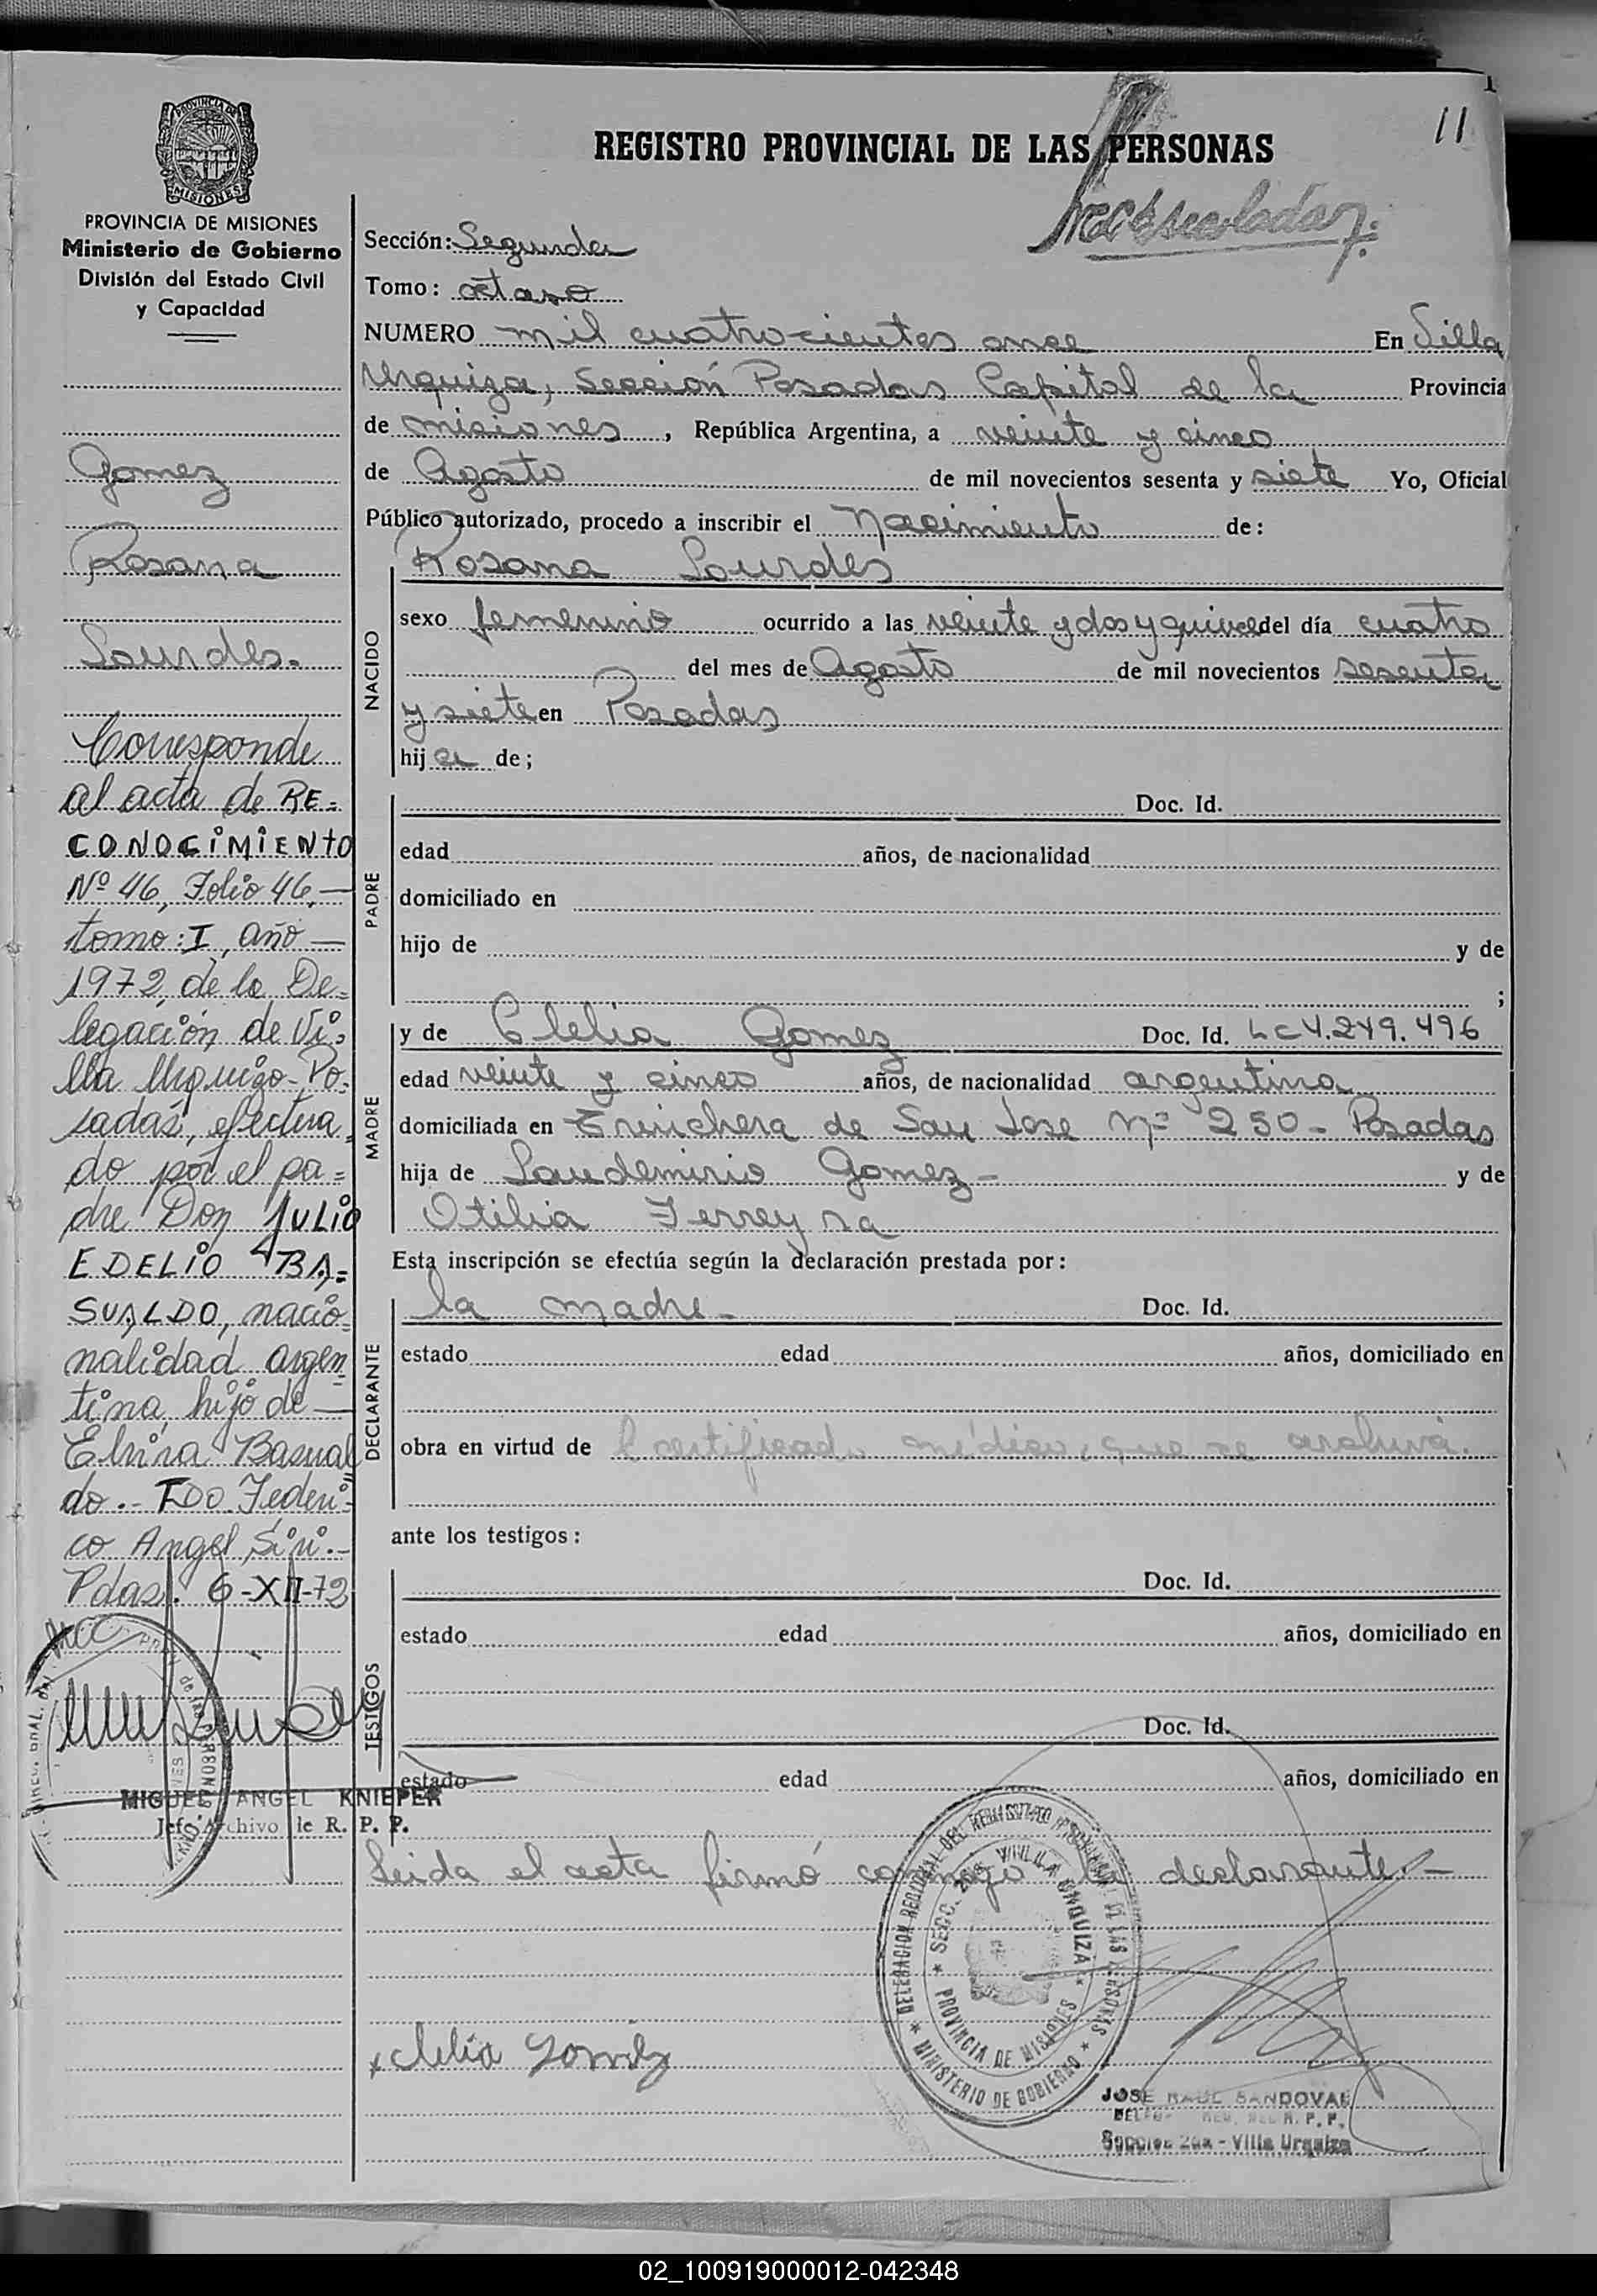 11
REGISTRO PROVINCIAL DE LAS PERSONAS
PROVINCIA DE
MISIONES
PROVINCIA DE MISIONES
Ministerio de Gobierno
División del Estado Civil
y Capacidad
Gomez
Rosana
Lourdes.
Corresponde
al acta de RE=
CONOCIMIENTO
Nº 46, Folio 46,—
tomo: I, año —
1972, de la De=
legación de Vi=
lla Urquiza-Po=
sadas, efectua=
do por el pa=
dre Don JULIO
EDELIO BA=
SUALDO, nacio=
nalidad argen=
tina, hijo de —
Elvira Basual
do.- FDO. Federi=
co Angel Siri.-
Pdas. 6-XII-72
MIGUEL ANGEL KNIEPER
Jefe Archivo de R. P. P.
Sección: Segunda
Tomo: octavo
NUMERO mil cuatrocientos once En Villa
Urquiza, Sección Posadas Capital de la Provincia
de misiones, República Argentina, a veinte y cinco
de Agosto de mil novecientos sesenta y siete Yo, Oficial
Público autorizado, procedo a inscribir el Nacimiento de:
Rosana Lourdes
NACIDO
sexo femenino ocurrido a las veinte y dos y quince del día cuatro
del mes de Agosto de mil novecientos sesenta
y siete en Posadas
hija de;
PADRE
Doc. Id.
edad años, de nacionalidad
domiciliado en
hijo de y de
;
MADRE
y de Clelia Gomez Doc. Id. LC 4.249.496
edad veinte y cinco años, de nacionalidad argentina
domiciliada en Trinchera de San Jose Nº 250 - Posadas
hija de Laudemirio Gomez - y de
Otilia Ferreyra
Esta inscripción se efectúa según la declaración prestada por:
DECLARANTE
la madre - Doc. Id.
estado edad años, domiciliado en
obra en virtud de certificado médico, que se archiva.
ante los testigos:
TESTIGOS
Doc. Id.
estado edad años, domiciliado en
Doc. Id.
estado edad años, domiciliado en
Leida el acta firmó conmigo la declarante.-
DELEGACION REGIONAL DEL REGISTRO PROVINCIAL DE LAS PERSONAS
SECC. 2da VILLA URQUIZA
PROVINCIA DE MISIONES
MINISTERIO DE GOBIERNO
x Clelia Gomez
JOSE RAUL SANDOVAL
Sección 2da - Villa Urquiza
02_100919000012-042348